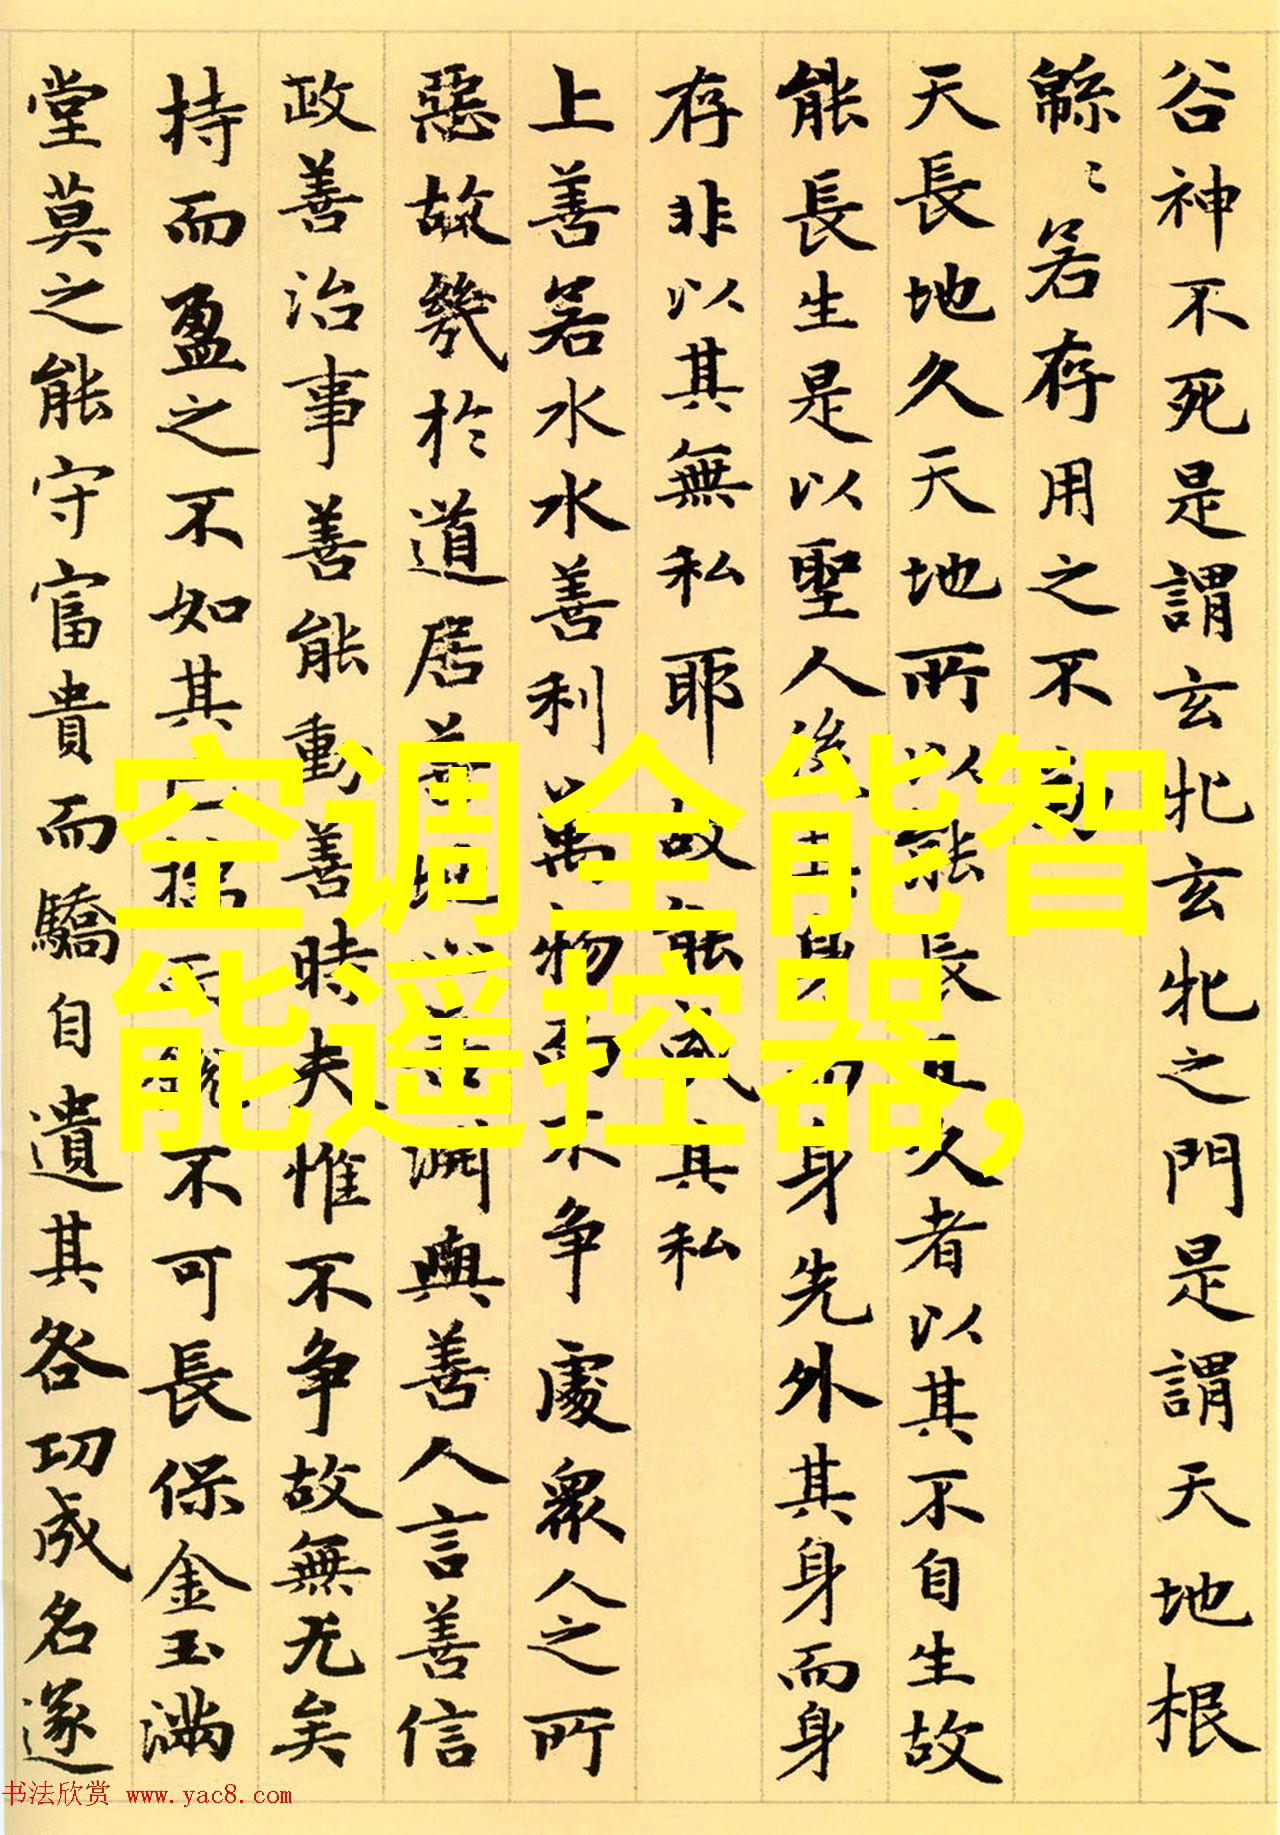 谷神不死是謂玄牝玄牝之門是謂天地根
緜〻若存用之不
天長地久天地所以能長且久者以其不自生故
能長生是以聖人後其身而身先外其身而身
存非以其無私耶故能成其私
上善若水水善利萬物而不争處衆人之所
惡故幾於道居善地心善淵與善人言善信
政善治事善能動善時夫惟不争故無尤矣
持而盈之不如其已揣而銳不可長保金玉滿
堂莫之能守富貴而驕自遺其咎功成名遂
空调全能智
能遥控器,
书法欣赏 www.yac8.com